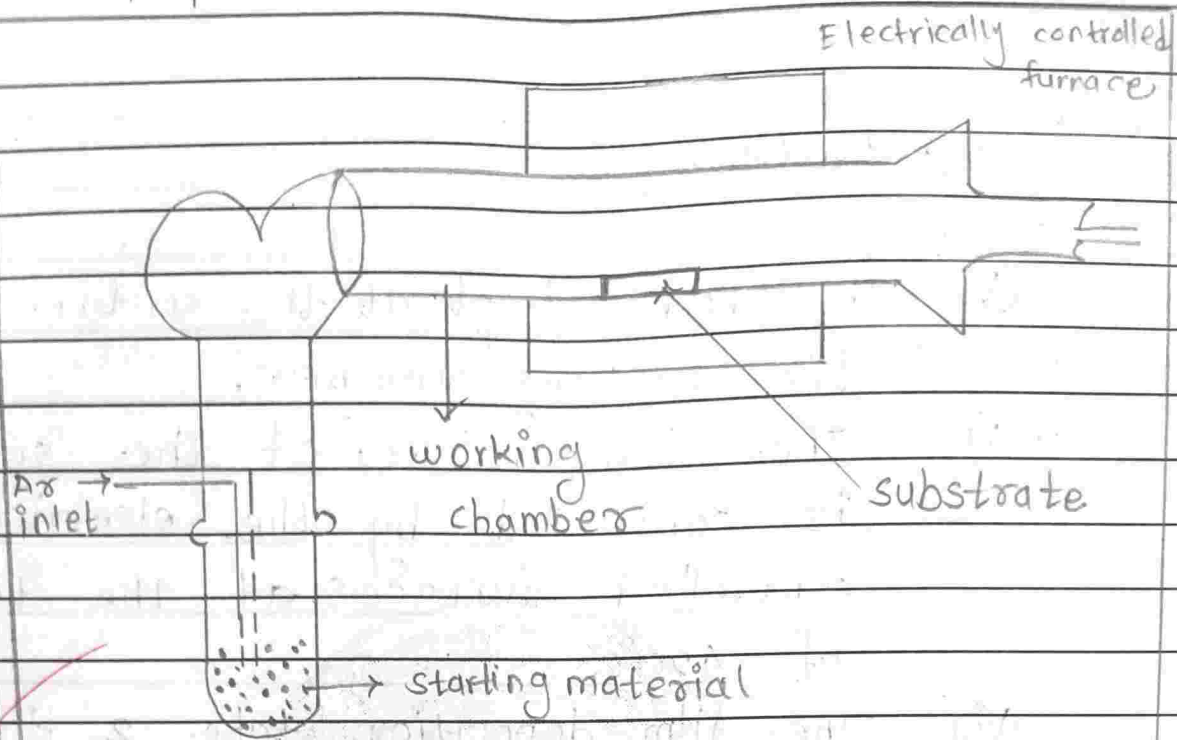 Electrically controlled
furnace
working
chamber
Ar
inlet
substrate
starting material